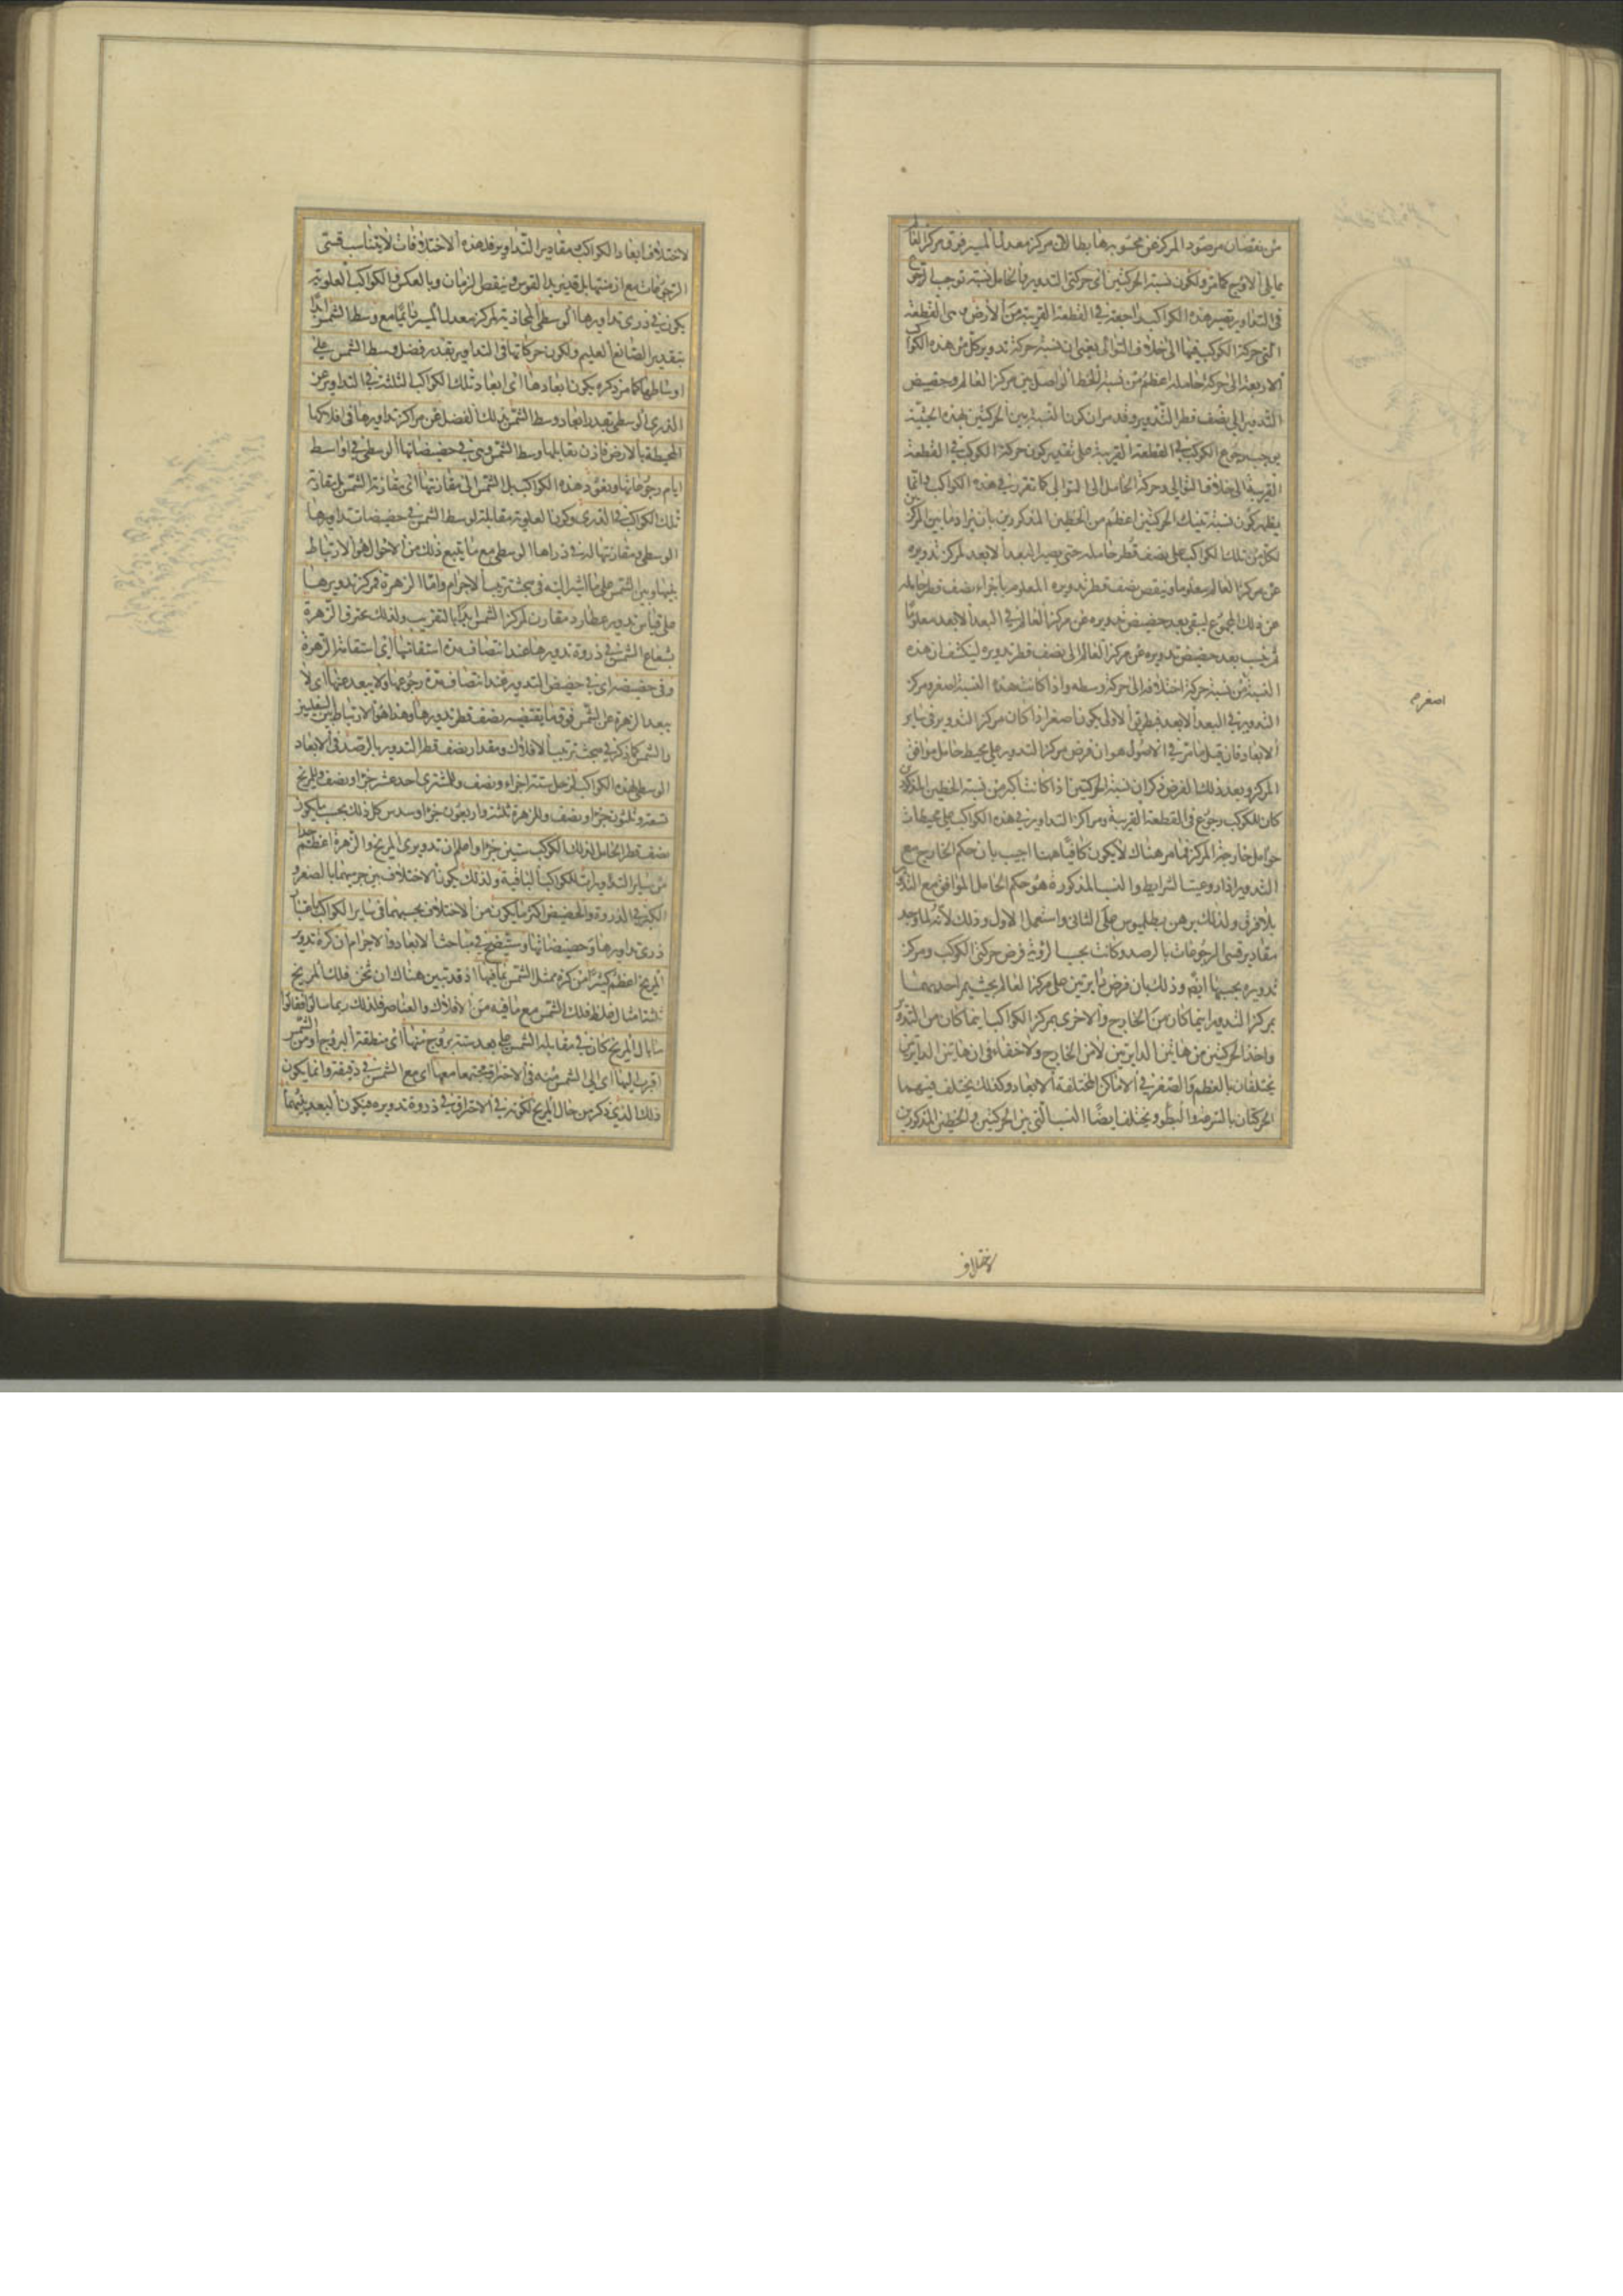 من نقصان مرصود المركز عن محسوبه هابطا لان مركز معدل المسير فوق مركز العالم
مما يلى الاوج كما مر ولكون نسبة الحركتين اى حركتى التدوير والحامل نسبة توجب الرجوع
فى التداوير تصير هذه الكواكب راجعة فى القطعة القريبة من الارض وهى القطعة
التى حركة الكوكب فيها الى خلاف التوالى يعنى ان نسبة حركة تدوير كل من هذه الكواكب
الاربعة الى حركة حامله اعظم من نسبة الخط الواصل بين مركز العالم وحضيض
التدوير الى نصف قطر التدوير وقد مر ان كون النسبة بين الحركتين بهذه الحيثية
يوجب رجوع الكوكب فى القطعة القريبة على تقدير كون حركة الكوكب فى القطعة
القريبة الى خلاف التوالى وحركة الحامل الى التوالى كما تقرر فى هذه الكواكب وانما
يظهر كون نسبة تينك الحركتين اعظم من الخطين المذكورين بان يزاد ما بين المركزين
لكل من تلك الكواكب على نصف قطر حامله حتى يصير البعد الابعد لمركز تدويره
عن مركز العالم معلوما وينقص نصف قطر تدويره المعلوم باجزاء نصف قطر حامله
عن ذلك المجموع ليبقى بعد حضيض تدويره عن مركز العالم فى البعد الابعد معلوما
ثم ينسب بعد حضيض تدويره عن مركز العالم الى نصف قطر تدويره لينكشف ان هذه
النسبة من نسبة حركة اختلافه الى حركة وسطه واذا كانت هذه النسبة اصغر ومركز
التدوير فى البعد الابعد فبطريق الاولى يكون اصغر اذا كان مركز التدوير فى سائر
الابعاد فان قيل ما مر فى الاصول هو ان فرض مركز التدوير على محيط حامل موافق
المركز وبعد ذلك الفرض ذكر ان نسبة الحركتين اذا كانت اكبر من نسبة الخطين المذكورين
كان للكوكب رجوع فى القطعة القريبة ومراكز التداوير فى هذه الكواكب على محيطات
حوامل خارجة المركز فما مر هناك لا يكون كافيا هنا اجيب بان حكم الخارج مع
التدوير اذا روعيت الشرايط والنسب المذكورة هو حكم الحامل الموافق مع التدوير
بلا فرق ولذلك برهن بطلميوس على الثانى واستعمل الاول وذلك لانه لما وجد
مقادير قسى الرجوعات بالرصد وكانت بحسب الرؤية فرض حركتى الكوكب ومركز
تدويره بحسبها ايضا وذلك بان فرض دايرتين على مركز العالم بحيث يمر احديهما
بمركز التدوير اينما كان من الخارج والاخرى بمركز الكوكب اينما كان من التدوير
واخذ الحركتين من هاتين الدايرتين لا من الخارج ولا خفاء فى ان هاتين الدايرتين
تختلفان بالعظم والصغر فى الاماكن المختلفة الابعاد وكذلك يختلف فيهما
الحركتان بالسرعة والبطؤ ويختلف ايضا النسب التى بين الحركتين والخطين المذكورين
اصغر م
لاختلاف
لاختلاف ابعاد الكواكب مقادير التداوير فلهذه الاختلافات لا يتناسب قسى
الرجوعات مع ازمنتها بل قد يزيد القوس وينقص الزمان وبالعكس والكواكب العلوية
يكون فى ذرى تداويرها الوسطى المحاذية لمركز معدل المسير دائما مع وسط الشمس ابدا
بتقدير الصانع العليم ولكون حركاتها فى التداوير بقدر فضل وسط الشمس على
اوساطها كما مر ذكره يكون ابعادها اى ابعاد تلك الكواكب الثلثة فى التداوير عن
الذرى الوسطى بقدر ابعاد وسط الشمس بذلك الفضل عن مراكز تداويرها فى افلاكها
المحيطة بالارض فاذن يقابلها وسط الشمس وهى فى حضيضاتها الوسطى فى اواسط
ايام رجوعاتها ويعود هذه الكواكب بل الشمس الى مقارنتها اى مقارنة الشمس بل مقارنة
تلك الكواكب فى الذرى وكون العلوية مقابلة لوسط الشمس فى حضيضات تداويرها
الوسطى ومقارنتها له فى ذراها الوسطى مع ما يتبع ذلك من الاحوال هو الارتباط
بينها وبين الشمس على ما اشير اليه فى مبحث ترتيب الاجرام واما الزهرة فمركز تدويرها
على قياس تدوير عطارد مقارن لمركز الشمس دائما بالتقريب ولذلك يحترق الزهرة
بشعاع الشمس فى ذروة تدويرها عند انتصاف مدة استقامتها اى استقامة الزهرة
وفى حضيضه اى فى حضيض التدوير عند انتصاف مدة رجوعها ولا يبعد عنها اى لا
يبعد الزهرة عن الشمس فوق ما يقتضيه نصف قطر تدويرها وهذا هو الارتباط بين السفليين
والشمس كما ذكر فى مبحث ترتيب الافلاك ومقدار نصف قطر التدوير بالرصد فى الابعاد
الوسطى لهذه الكواكب لزحل ستة اجزاء ونصف وللمشترى احد عشر جزءا ونصف وللمريخ
تسعة وثلثون جزءا ونصف وللزهرة ثلثة واربعون جزءا وسدس كل ذلك بحسب ما يكون
نصف قطر الحامل لذلك الكوكب ستين جزءا واعلم ان تدويرى المريخ والزهرة اعظم جدا
من ساير التداويرات للكواكب الباقية ولذلك يكون الاختلاف بين جرميهما بالصغر و
الكبر فى الذروة والحضيض اكثر ما يكون من الاختلاف بحسبهما فى ساير الكواكب باعتبار
ذرى تداويرها وحضيضاتها وسيتضح فى مباحث الابعاد والاجرام ان كرة تدوير
المريخ اعظم كثيرا من كرة ممثل الشمس بما فيها اذ قد تبين هناك ان ثخن فلك المريخ
ثلثة امثال غلظ فلك الشمس مع ما فيه من الافلاك والعناصر فلذلك ربما سالوا فقالوا
ما بال المريخ كان فى مقابلة الشمس على بعد ستة بروج منها اى منطقة البروج او من الشمس
اقرب اليها اى الى الشمس منه فى الاحتراق مجتمعا معها اى مع الشمس فى دقيقة وانما يكون
ذلك الذى ذكر من حال المريخ لكونه فى الاحتراق فى ذروة تدويره فيكون البعد بينهما